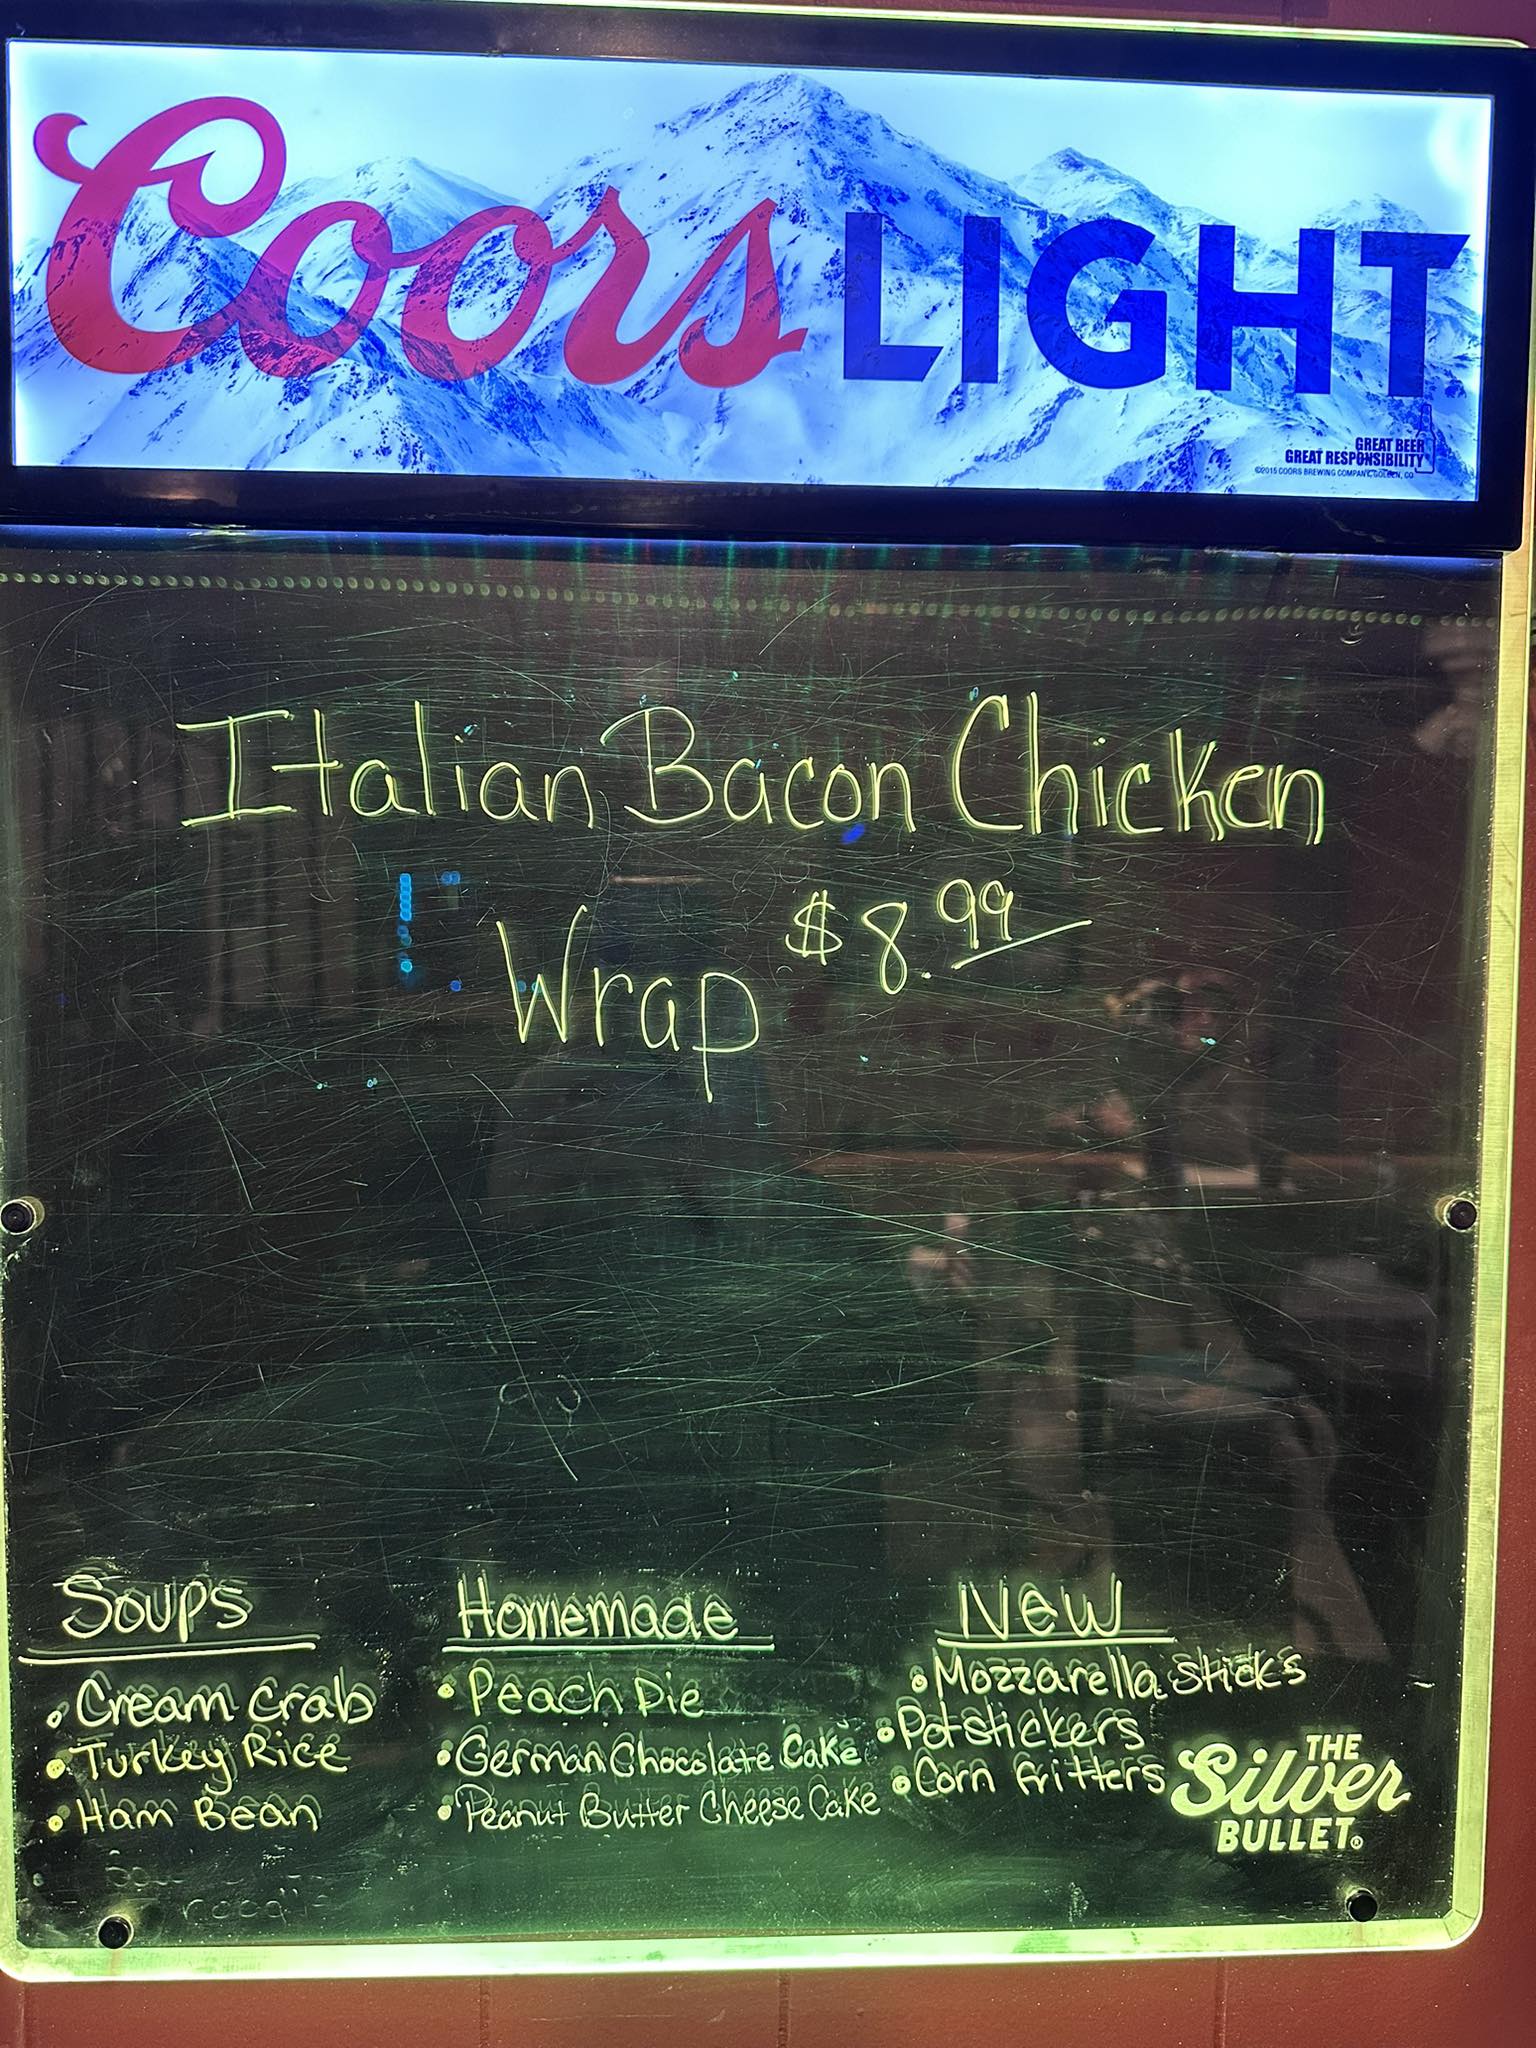 Coors LIGHT
GREAT BEER
GREAT RESPONSIBILITY
©2015 COORS BREWING COMPANY, GOLDEN, CO
Italian Bacon Chicken
Wrap $8.99
Soups
• Cream Crab
• Turkey Rice
• Ham Bean
Homemade
• Peach Pie
• German Chocolate Cake
• Peanut Butter Cheese Cake
New
• Mozzarella Sticks
• Potstickers
• Corn Fritters
THE
Silver
BULLET®